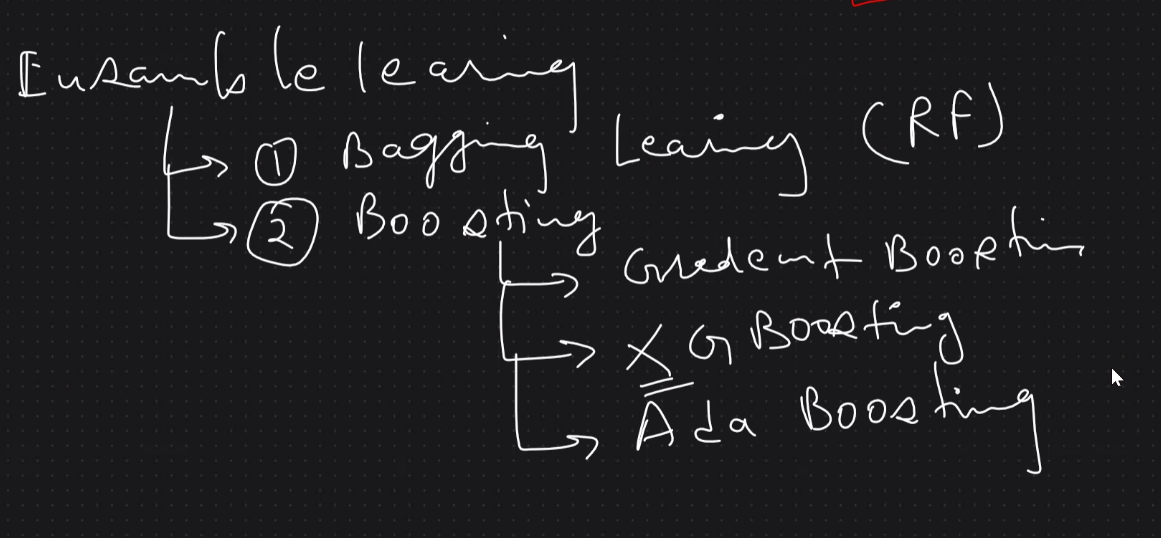 Ensamble learing
① Bagging Learing (RF)
② Boosting
Gredent Boostin
XG Boosting
Ada Boosting